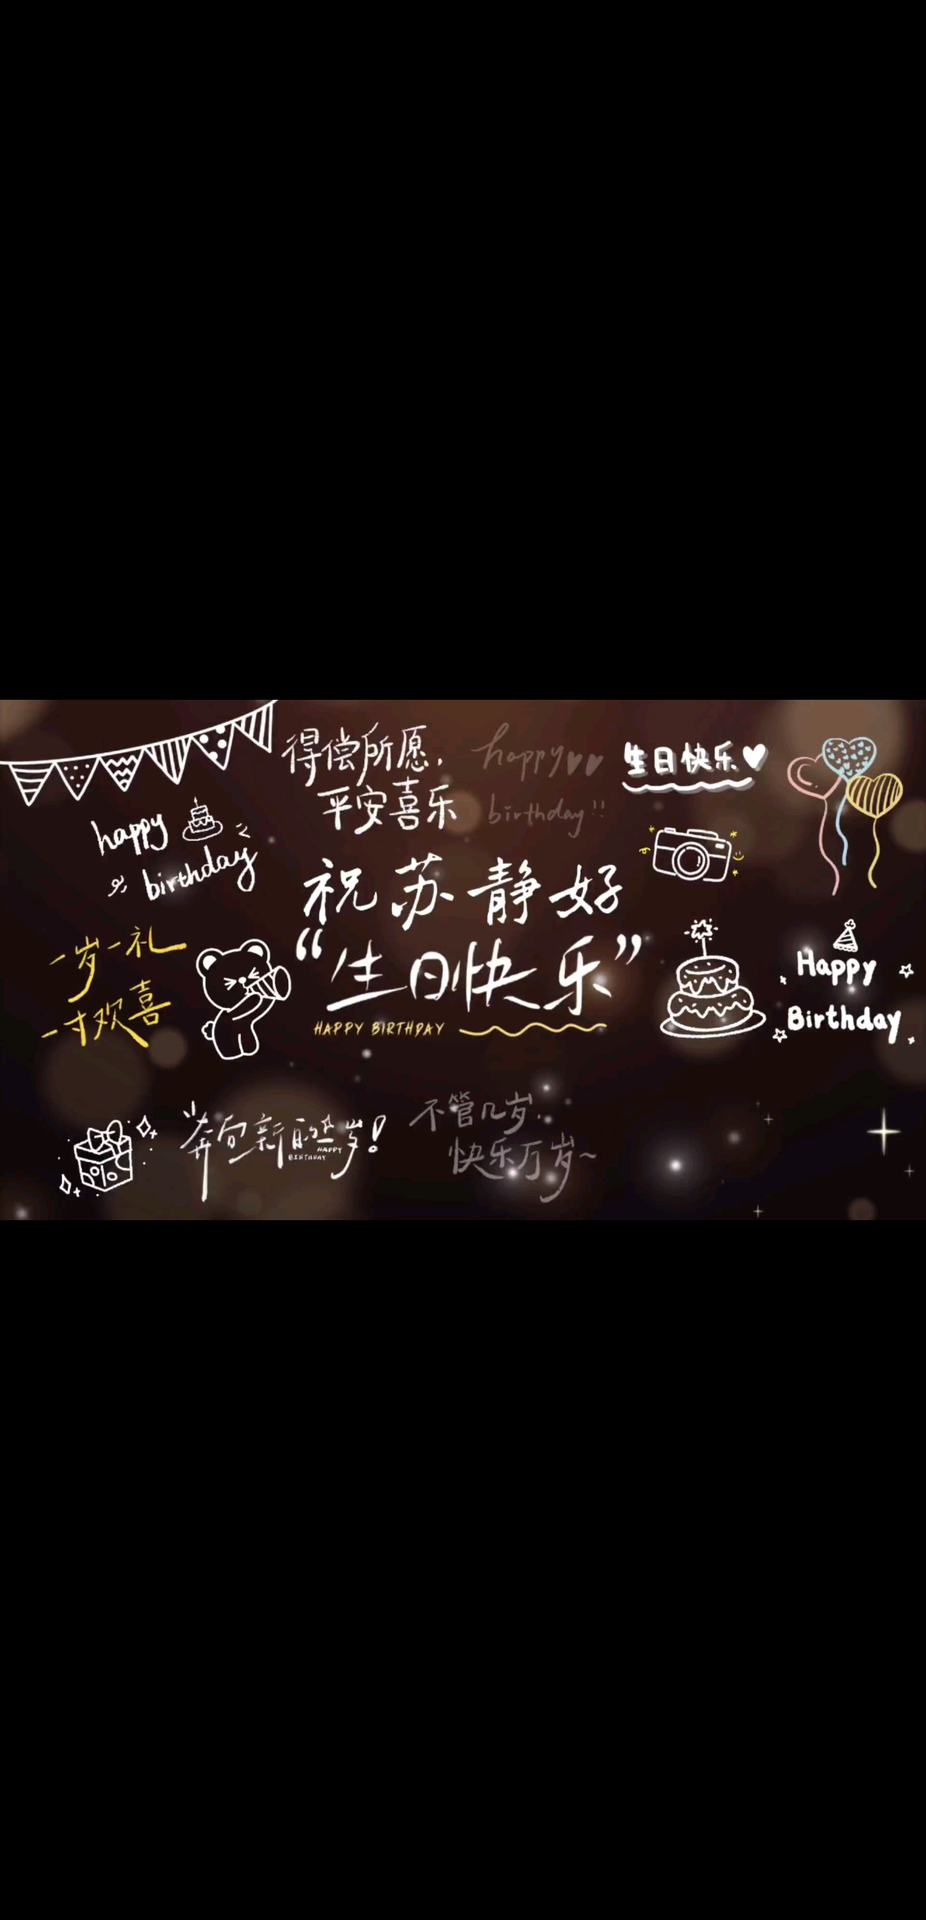 得偿所愿，
平安喜乐
happy
birthday!!
生日快乐
happy
birthday
祝苏静好
“生日快乐”
HAPPY BIRTHDAY
一岁一礼
一寸欢喜
Happy
Birthday
奔向新的一岁！
HAPPY
BIRTHDAY
不管几岁，
快乐万岁~